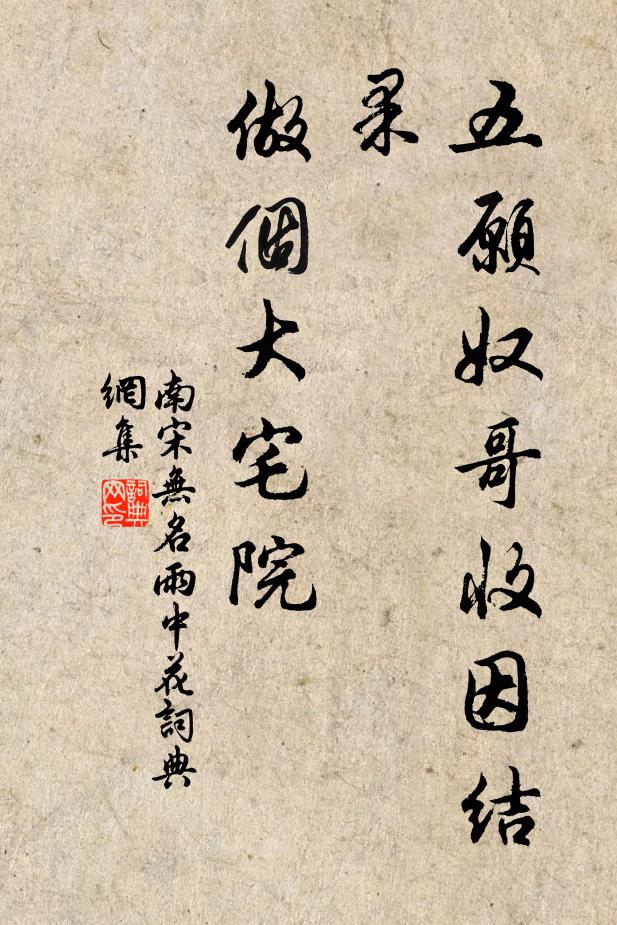 五願奴哥收因結
果
做個大宅院
南宋無名雨中花詞典
網集
詞典
网印